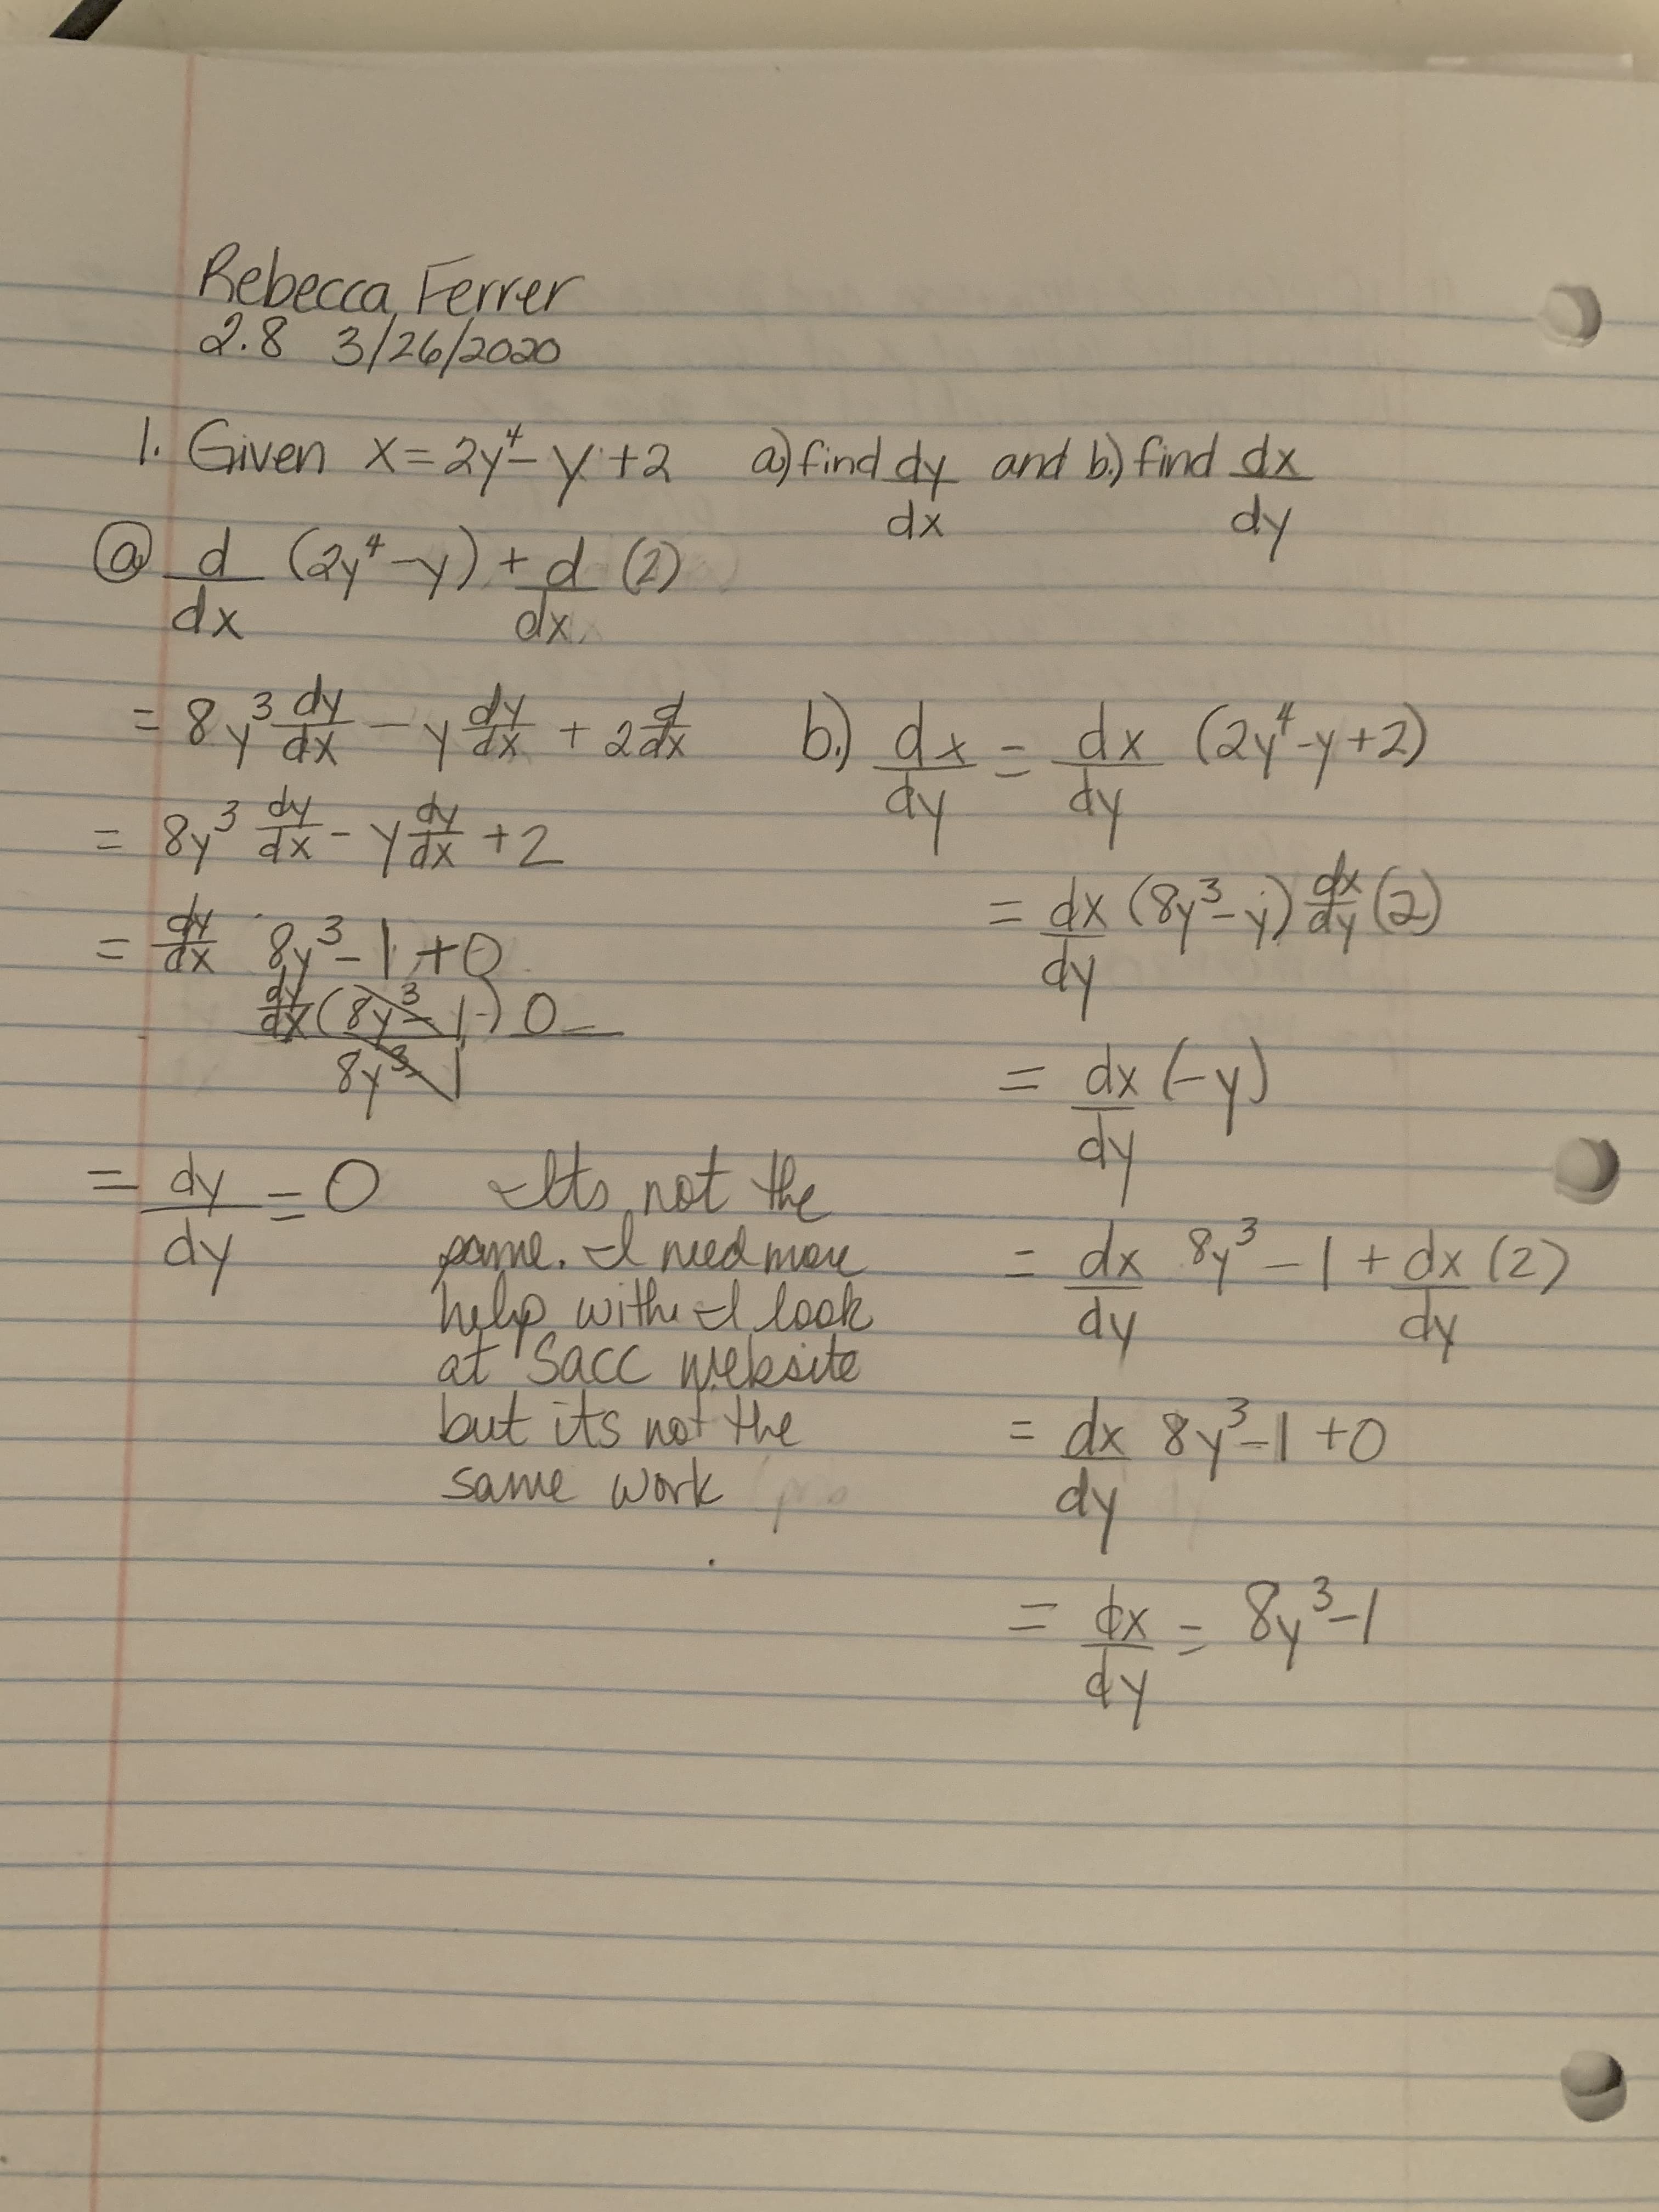 Rebecca Ferrer
2.8 3/26/2020
1. Given x=2y⁴-y+2 a) find dy/dx and b.) find dx/dy
ⓐ d/dx (2y⁴-y) + d/dx (2)
= 8y³ dy/dx - y dy/dx + 2 d/dx
= 8y³ dy/dx - y dy/dx + 2
= dy/dx 8y³-1+0
dy/dx (8y³-1) 0
8y³-1
= dy/dy = 0
Its not the
same. I need more
help with I look
at Sacc website
but its not the
same work
b.) dx/dy = dx/dy (2y⁴-y+2)
= dx/dy (8y³-y) dx/dy (2)
= dx/dy (-y)
= dx/dy 8y³-1+dx/dy (2)
= dx/dy 8y³-1+0
= dx/dy = 8y³-1